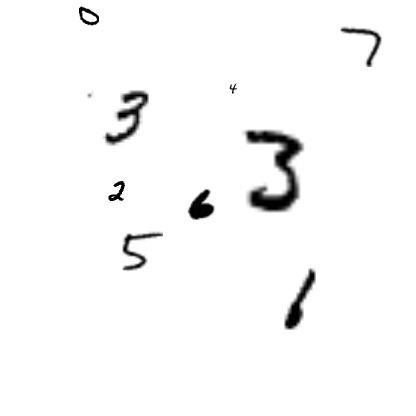 0
7
4
3
3
2
6
5
6